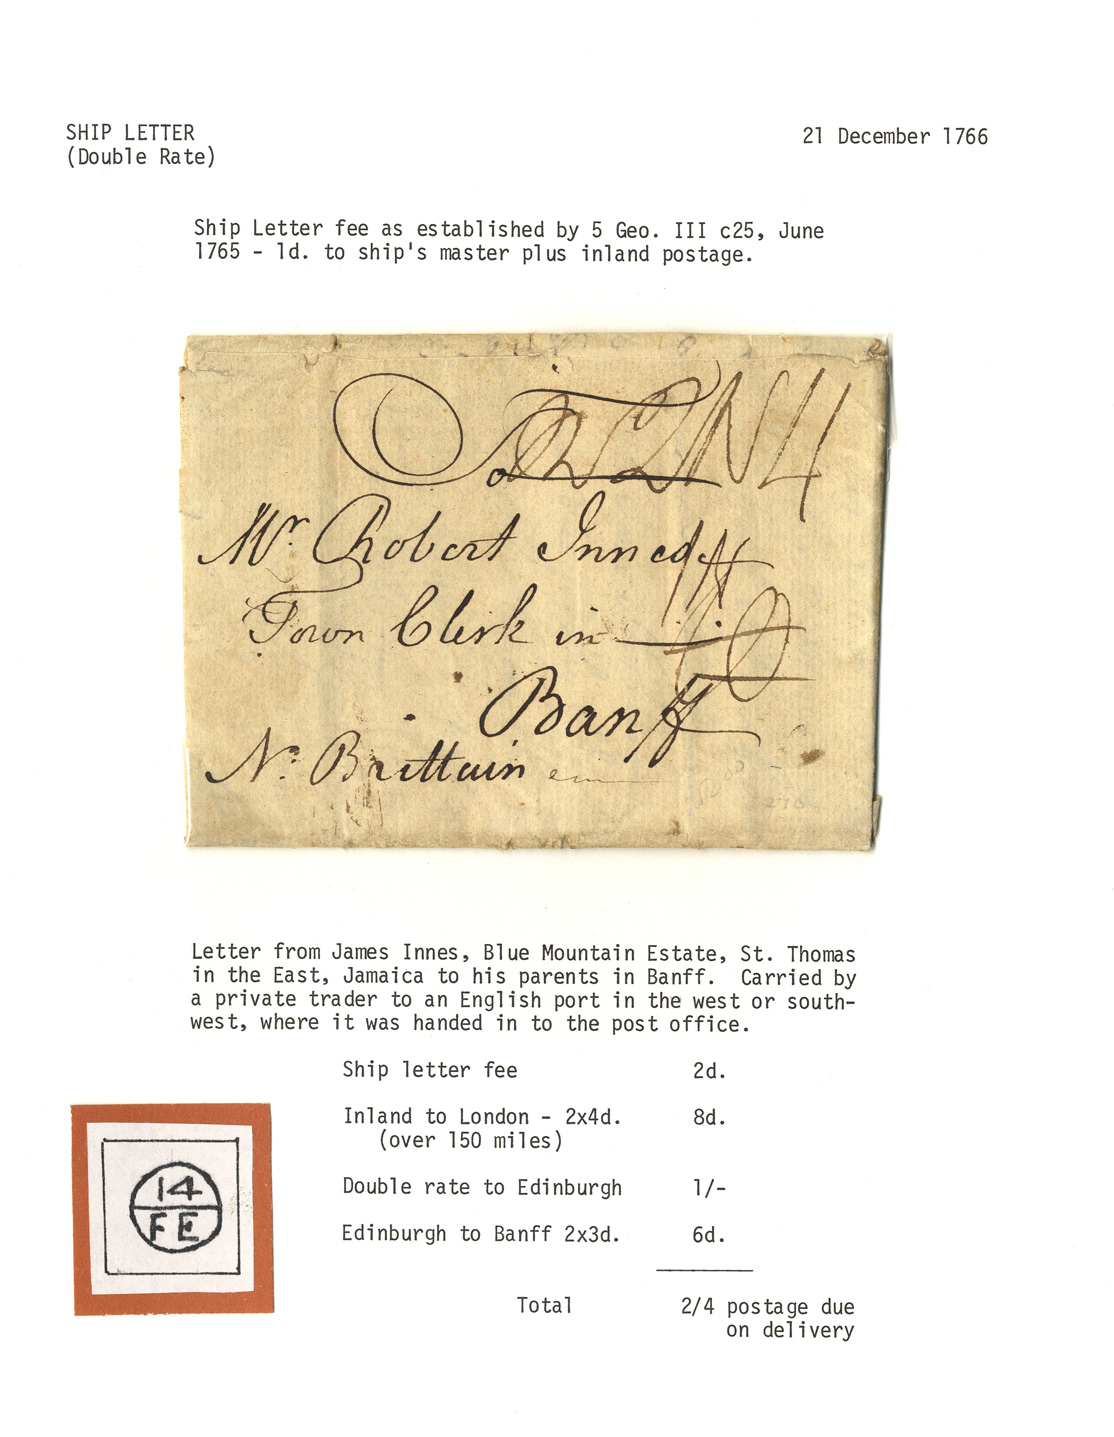 SHIP LETTER
(Double Rate)
21 December 1766
Ship Letter fee as established by 5 Geo. III c25, June
1765 - 1d. to ship's master plus inland postage.
To 2N4
Mr. Robert Innes
Town Clerk in
Banff
No. Brittain
Letter from James Innes, Blue Mountain Estate, St. Thomas
in the East, Jamaica to his parents in Banff. Carried by
a private trader to an English port in the west or south-
west, where it was handed in to the post office.
Ship letter fee 2d.
Inland to London - 2x4d. 8d.
(over 150 miles)
Double rate to Edinburgh 1/-
Edinburgh to Banff 2x3d. 6d.
Total 2/4 postage due
on delivery
14
FE